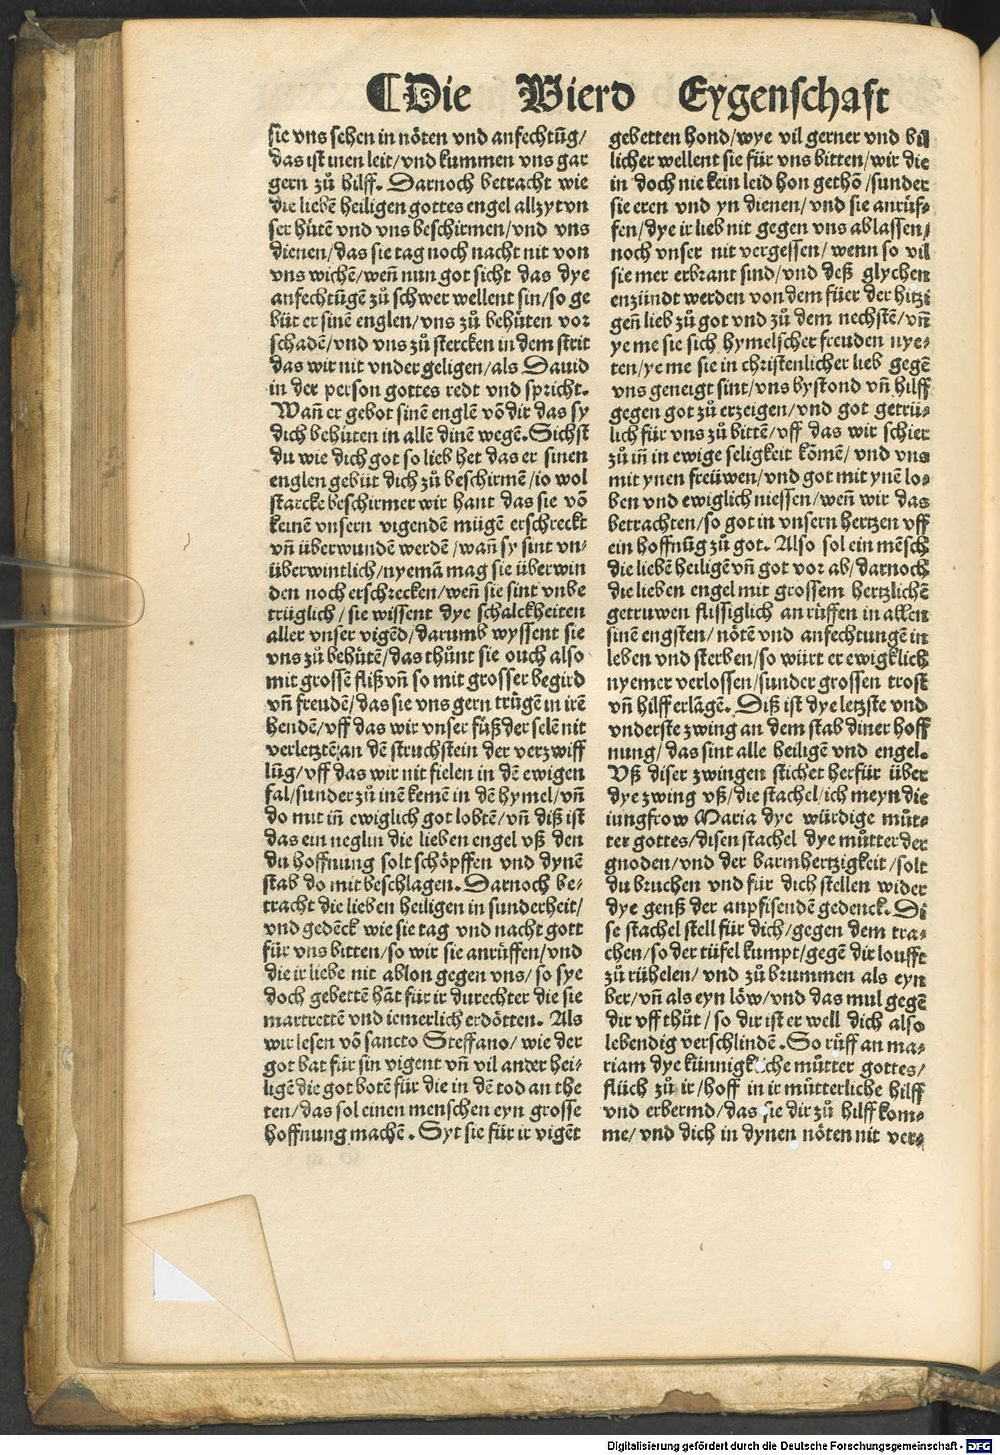 ¶Die Vierd Eygenschaft
sie vns sehen in nöten vnd anfechtũg/
das ist inen leit/vnd kummen vns gar
gern zů hilff. Darnoch betracht wie
die liebẽ heiligen gottes engel allzyt vn
ser hütẽ vnd vns beschirmen/vnd vns
dienen/das sie tag noch nacht nit von
vns wichẽ/wen̄ nun got sicht das dye
anfechtũgẽ zů schwer wellent sin/so ge
büt er sinẽ englen/vns zů behüten vor
schadẽ/vnd vns zů stercken in dem strit
das wir nit vnder geligen/als Dauid
in der person gottes redt vnd spricht.
Wan̄ er gebot sinẽ englẽ võ dir das sy
dich behüten in allẽ dinẽ wegẽ. Sichst
du wie dich got so lieb het das er sinen
englen gebüt dich zů beschirmẽ/io wol
starcke beschirmer wir hant das sie võ
keinẽ vnsern vigendẽ mügẽ erschreckt
vn̄ überwundẽ werdẽ/wan̄ sy sint vn-
überwintlich/nyemã mag sie überwin
den noch erschrecken/wen̄ sie sint vnbe
trüglich/sie wissent dye schalckheiten
aller vnser vigẽd/darumb wyssent sie
vns zů behütẽ/das thůnt sie ouch also
mit grossẽ fliß vn̄ so mit grosser begird
vn̄ freudẽ/das sie vns gern trügẽ in irẽ
hendẽ/vff das wir vnser füß der selẽ nit
verletztẽ an dẽ struchstein der verzwiff
lũg/vff das wir nit fielen in dẽ ewigen
fal/sunder zů inẽ kemẽ in dẽ hymel/vn̄
do mit in̄ ewiglich got lobtẽ/vn̄ diß ist
das ein neglin die lieben engel vß den
du hoffnung solt schöpffen vnd dynẽ
stab do mit beschlagen. Darnoch be-
tracht die lieben heiligen in sunderheit/
vnd gedẽck wie sie tag vnd nacht gott
für vns bitten/so wir sie anrüffen/vnd
die ir liebe nit ablon gegen vns/so sye
doch gebettẽ hãt für ir durechter die sie
martrettẽ vnd iemerlich erdötten. Als
wir lesen võ sancto Steffano/wie der
got bat für sin vigent vn̄ vil ander hei-
ligẽ die got botẽ für die in dẽ tod an the
ten/das sol einen menschen eyn grosse
hoffnung machẽ. Syt sie für ir vigẽt
gebetten hond/wye vil gerner vnd bil
licher wellent sie für vns bitten/wir die
in doch nie kein leid hon gethõ/sunder
sie eren vnd yn dienen/vnd sie anrüf-
fen/dye ir lieb nit gegen vns ablassen/
noch vnser nit vergessen/wenn so vil
sie mer erbrant sind/vnd deß glychen
enzündt werden von dem füer der hitzi
gen̄ lieb zů got vnd zů dem nechstẽ/vn̄
ye me sie sich hymelscher freuden nye-
ten/ye me sie in christenlicher lieb gegẽ
vns geneigt sint/vns bystond vn̄ hilff
gegen got zů erzeigen/vnd got getrü-
lich für vns zů bittẽ/vff das wir schier
zů in̄ in ewige seligkeit kõmẽ/vnd vns
mit ynen freüwen/vnd got mit ynẽ lo-
ben vnd ewiglich niessen/wen̄ wir das
betrachten/so got in vnsern hertzen vff
ein hoffnũg zů got. Also sol ein mẽsch
die liebẽ heiligẽ vn̄ got vor ab/darnoch
die lieben engel mit grossem hertzlichẽ
getruwen flissiglich an rüffen in allen
sinẽ engsten/nötẽ vnd anfechtungẽ in
leben vnd sterben/so würt er ewigklich
nyemer verlossen/sunder grossen trost
vn̄ hilff erlãgẽ. Diß ist dye letzste vnd
vnderste zwing an dem stab diner hoff
nung/das sint alle heiligẽ vnd engel.
Vß diser zwingen stichet herfür über
dye zwing vß/die stachel/ich meyn die
iungfrow Maria dye würdige můt-
ter gottes/disen stachel dye můtter der
gnoden/vnd der barmhertzigkeit/solt
du bruchen vnd für dich stellen wider
dye genß der anpfisendẽ gedenck. Di
se stachel stell für dich/gegen dem tra-
chen/so der tüfel kumpt/gegẽ dir loufft
zů rühelen/vnd zů brummen als eyn
ber/vn̄ als eyn löw/vnd das mul gegẽ
dir vff thůt/so dir ist er well dich also
lebendig verschlindẽ. So rüff an ma-
riam dye künnigkliche můtter gottes/
flüch zů ir/hoff in ir můtterliche hilff
vnd erbermd/das sie dir zů hilff kom-
me/vnd dich in dynen nöten nit ver-
Digitalisierung gefördert durch die Deutsche Forschungsgemeinschaft - DFG